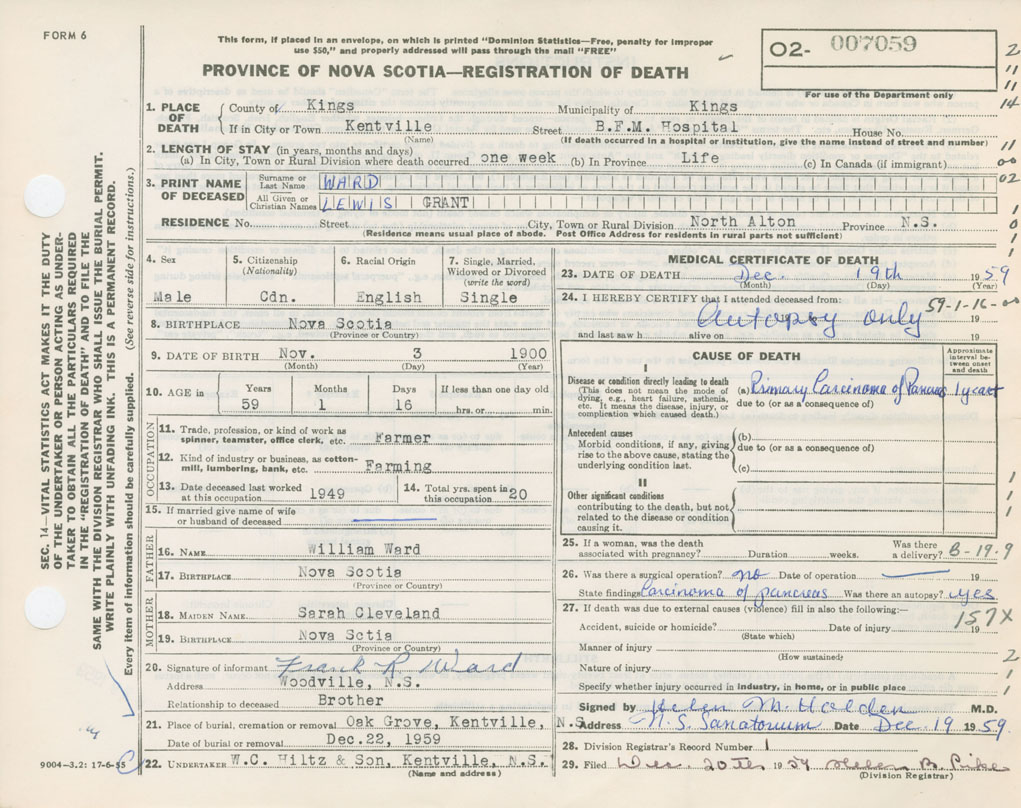 FORM 6
This form, if placed in an envelope, on which is printed "Dominion Statistics—Free, penalty for improper
use $50," and properly addressed will pass through the mail "FREE"
PROVINCE OF NOVA SCOTIA—REGISTRATION OF DEATH
O2- 007059
For use of the Department only
2
11
11
14
11
00
02
1
0
1
1
SEC. 14—VITAL STATISTICS ACT MAKES IT THE DUTY
OF THE UNDERTAKER OR PERSON ACTING AS UNDER-
TAKER TO OBTAIN ALL THE PARTICULARS REQUIRED
IN THE "REGISTRATION OF DEATH" AND TO FILE THE
SAME WITH THE DIVISION REGISTRAR WHO SHALL ISSUE THE BURIAL PERMIT.
WRITE PLAINLY WITH UNFADING INK. THIS IS A PERMANENT RECORD.
Every item of information should be carefully supplied. (See reverse side for instructions.)
1. PLACE OF DEATH
County of Kings Municipality of Kings
If in City or Town Kentville Street B.F.M. Hospital House No.
(Name) (If death occurred in a hospital or institution, give the name instead of street and number)
2. LENGTH OF STAY (in years, months and days)
(a) In City, Town or Rural Division where death occurred one week (b) In Province Life (c) In Canada (if immigrant)
3. PRINT NAME OF DECEASED
Surname or Last Name WARD
All Given or Christian Names LEWIS GRANT
RESIDENCE No. Street City, Town or Rural Division North Alton Province N.S.
(Residence means usual place of abode. Post Office Address for residents in rural parts not sufficient)
4. Sex 5. Citizenship (Nationality) 6. Racial Origin 7. Single, Married, Widowed or Divorced (write the word)
Male Cdn. English Single
8. BIRTHPLACE Nova Scotia
(Province or Country)
9. DATE OF BIRTH Nov. 3 1900
(Month) (Day) (Year)
10. AGE in Years Months Days If less than one day old
59 1 16 hrs. or min.
OCCUPATION
11. Trade, profession, or kind of work as
spinner, teamster, office clerk, etc. Farmer
12. Kind of industry or business, as cotton-
mill, lumbering, bank, etc. Farming
13. Date deceased last worked
at this occupation 1949
14. Total yrs. spent in
this occupation 20
15. If married give name of wife
or husband of deceased
FATHER
16. NAME William Ward
17. BIRTHPLACE Nova Scotia
(Province or Country)
MOTHER
18. MAIDEN NAME Sarah Cleveland
19. BIRTHPLACE Nova Sctia
(Province or Country)
20. Signature of informant Frank R Ward
Address Woodville, N.S.
Relationship to deceased Brother
21. Place of burial, cremation or removal Oak Grove, Kentville, N.S.
Date of burial or removal Dec.22, 1959
22. UNDERTAKER W.C. Hiltz & Son, Kentville, N.S.
(Name and address)
9004-3.2: 17-6-55
MEDICAL CERTIFICATE OF DEATH
23. DATE OF DEATH Dec. 19th 1959
(Month) (Day) (Year)
24. I HEREBY CERTIFY that I attended deceased from:
59-1-16-00
Autopsy only 19
and last saw h alive on 19
CAUSE OF DEATH
Approximate interval between onset and death
I
Disease or condition directly leading to death
(This does not mean the mode of
dying, e.g., heart failure, asthenia,
etc. It means the disease, injury, or
complication which caused death.)
(a) Primary Carcinoma of Pancreas 1 year+
due to (or as a consequence of)
Antecedent causes
Morbid conditions, if any, giving
rise to the above cause, stating the
underlying condition last.
(b)
due to (or as a consequence of)
(c)
II
Other significant conditions
contributing to the death, but not
related to the disease or condition
causing it.
1
1
1
25. If a woman, was the death
associated with pregnancy? Duration weeks. Was there
a delivery? B-19.9
26. Was there a surgical operation? no Date of operation 19
State findings Carcinoma of pancreas Was there an autopsy? yes
27. If death was due to external causes (violence) fill in also the following:—
157X
Accident, suicide or homicide? Date of injury 19
(State which)
Manner of injury
(How sustained)
2
Nature of injury
1
Specify whether injury occurred in industry, in home, or in public place
1
Signed by Helen M. Holden M.D.
Address N.S. Sanatorium Date Dec 19 1959
28. Division Registrar's Record Number 1
29. Filed Dec. 20th 1959 Helen B. Pike
(Division Registrar)